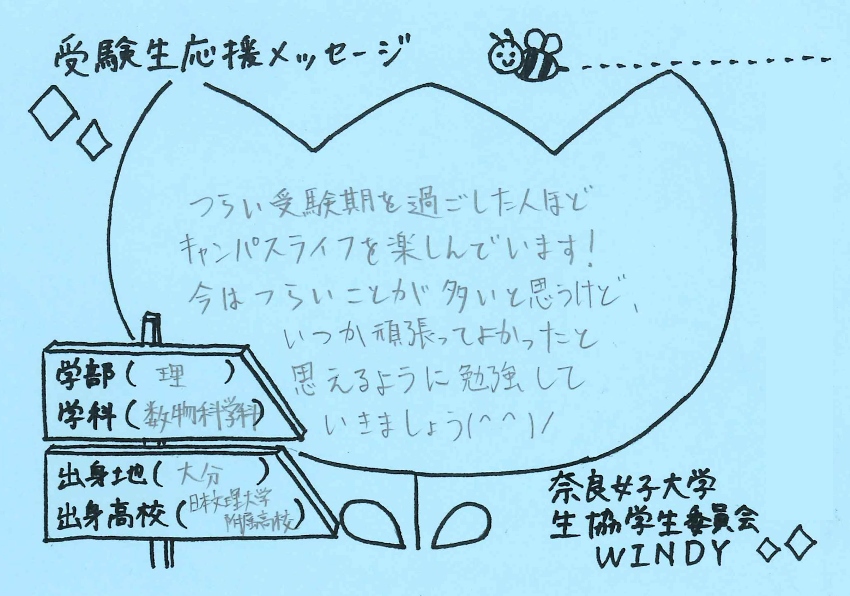 受験生応援メッセージ
つらい受験期を過ごした人ほど
キャンパスライフを楽しんでいます!
今はつらいことが多いと思うけど、
いつか頑張ってよかったと
思えるように勉強して
いきましょう(^^)/
学部(理)
学科(数物科学科)
出身地(大分)
出身高校(日本文理大学
附属高校)
奈良女子大学
生協学生委員会
WINDY